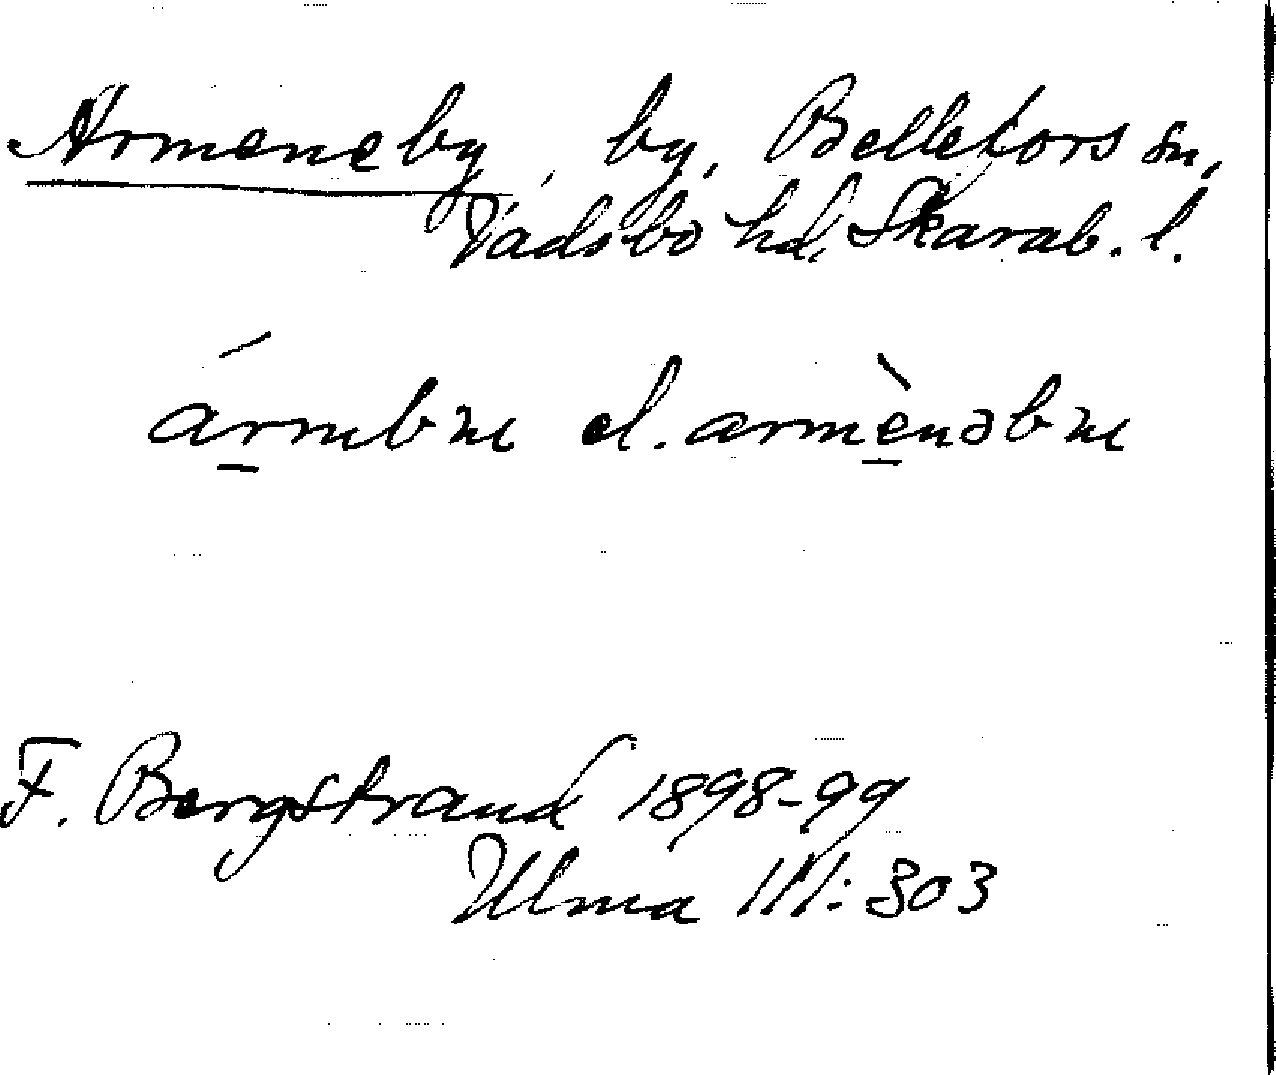 Armeneby, by, Bellefors sn,
Vadsbo hd, Skarab. l.
el.
F. Bergstrand 1898-99
Ulma 111:303